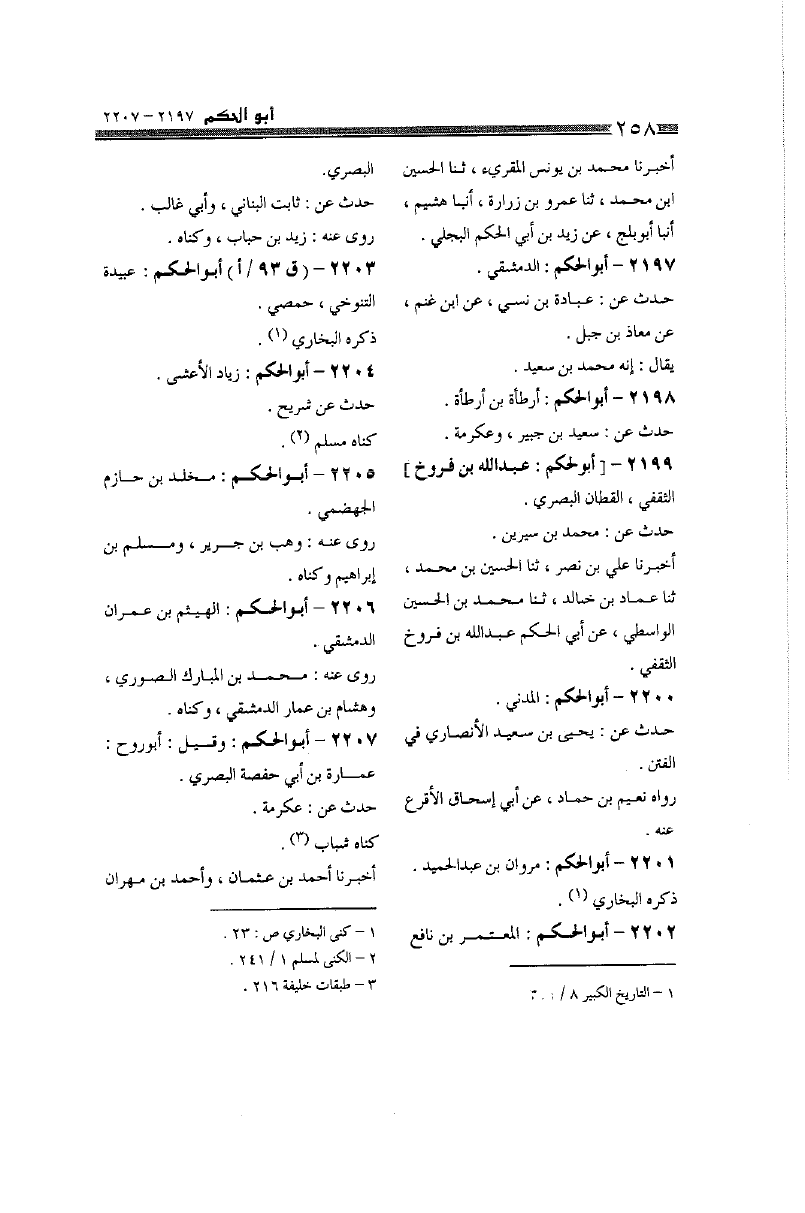 ٢٥٨
أبو الحكم ٢١٩٧-٢٢٠٧
أخبرنا محمد بن يونس المقريء ، ثنا الحسين
ابن محمد ، ثنا عمرو بن زرارة ، أنبا هشيم ،
أنبا أبوبلج ، عن زيد بن أبي الحكم البجلي .
٢١٩٧ - أبوالحكم : الدمشقي .
حدث عن : عبادة بن نسي ، عن ابن غنم ،
عن معاذ بن جبل .
يقال : إنه محمد بن سعيد .
٢١٩٨ - أبوالحكم : أرطأة بن أرطأة .
حدث عن : سعيد بن جبير ، وعكرمة .
٢١٩٩ - [ أبولحكم : عبدالله بن فروخ ]
الثقفي ، القطان البصري .
حدث عن : محمد بن سيرين .
أخبرنا علي بن نصر ، ثنا الحسين بن محمد ،
ثنا عماد بن خالد ، ثنا محمد بن الحسين
الواسطي ، عن أبي الحكم عبدالله بن فروخ
الثقفي .
٢٢٠٠ - أبوالحكم : المدني .
حدث عن : يحيى بن سعيد الأنصاري في
الفتن .
رواه نعيم بن حماد ، عن أبي إسحاق الأقرع
عنه .
٢٢٠١ - أبوالحكم : مروان بن عبدالحميد .
ذكره البخاري (١) .
٢٢٠٢ - أبوالحكم : المعتمر بن نافع
١ - التاريخ الكبير ٨ /
البصري.
حدث عن : ثابت البناني ، وأبي غالب .
روى عنه : زيد بن حباب ، وكناه .
٢٢٠٣ - ( ق ٩٣ / أ ) أبوالحكم : عبيدة
التنوخي ، حمصي .
ذكره البخاري (١) .
٢٢٠٤ - أبوالحكم : زياد الأعشى .
حدث عن شريح .
كناه مسلم (٢) .
٢٢٠٥ - أبوالحكم : مخلد بن حازم
الجهضمي .
روى عنه : وهب بن جرير ، ومسلم بن
إبراهيم وكناه .
٢٢٠٦ - أبوالحكم : الهيثم بن عمران
الدمشقي .
روى عنه : محمد بن المبارك الصوري ،
وهشام بن عمار الدمشقي ، وكناه .
٢٢٠٧ - أبوالحكم : وقيل : أبوروح :
عمارة بن أبي حفصة البصري .
حدث عن : عكرمة .
كناه شباب (٣) .
أخبرنا أحمد بن عثمان ، وأحمد بن مهران
١ - كنى البخاري ص : ٢٣ .
٢ - الكنى لمسلم ١ / ٢٤١ .
٣ - طبقات خليفة ٢١٦ .